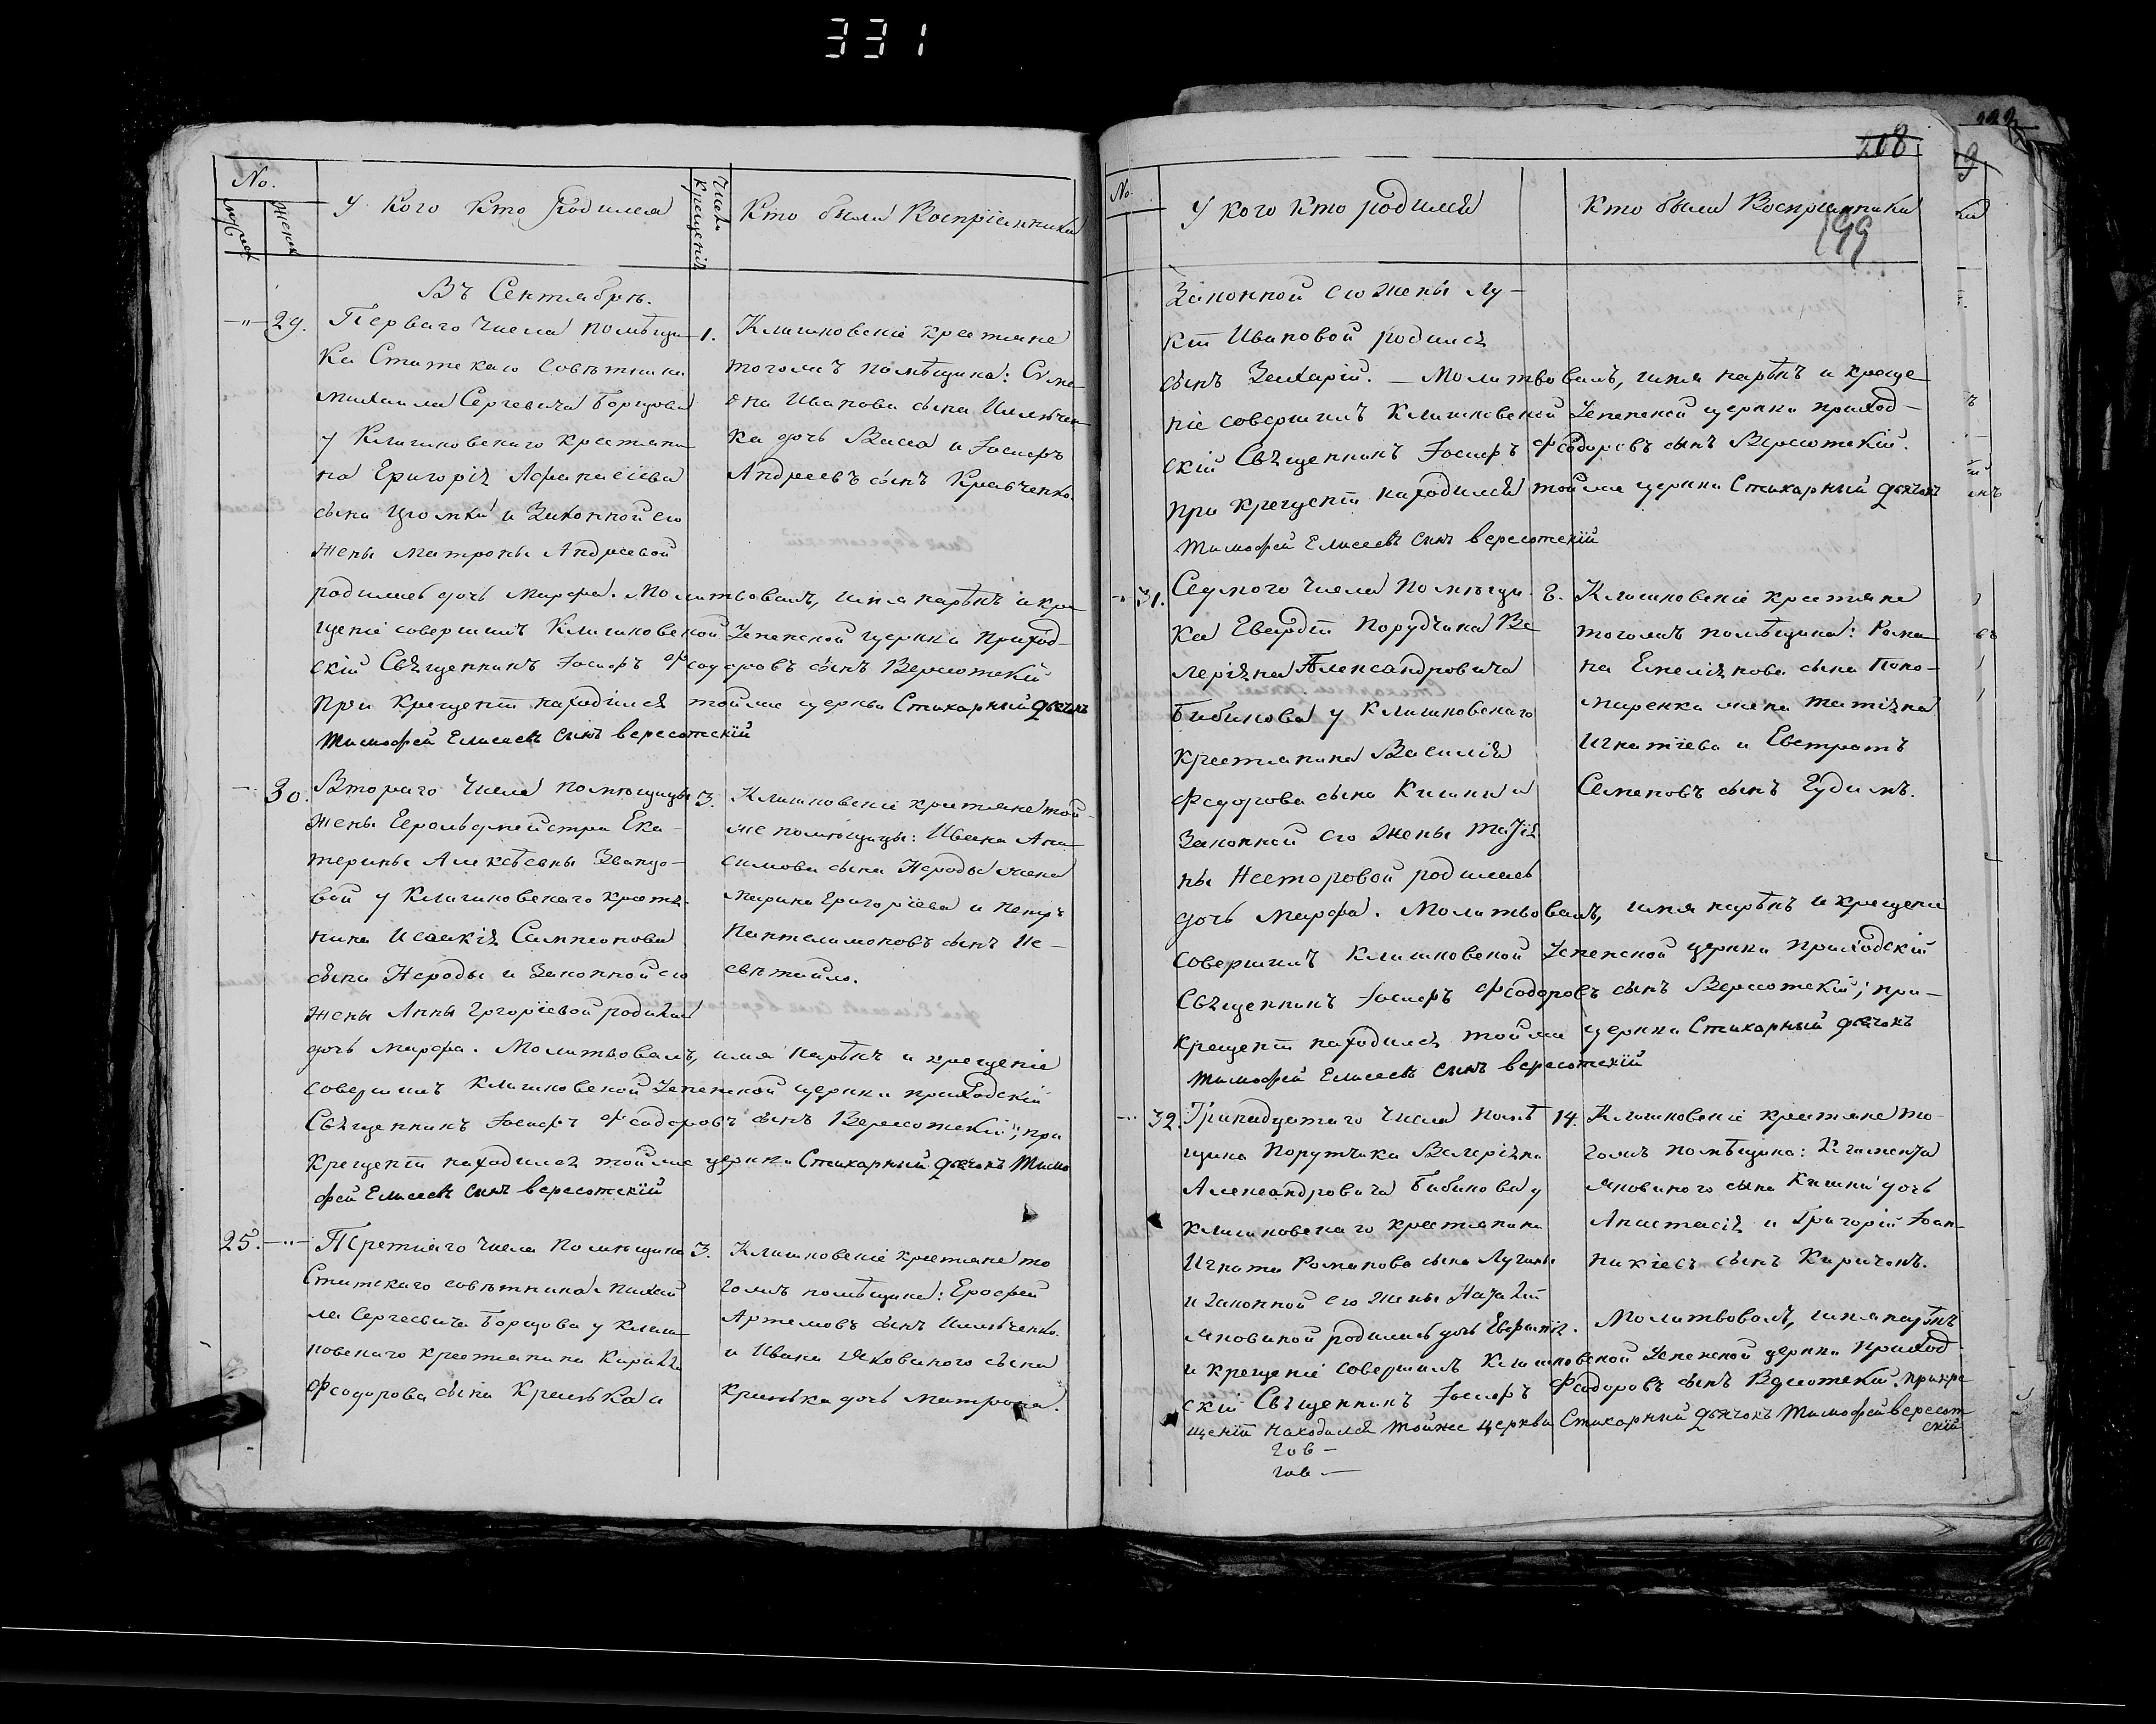 331
No.
Мужеск
Женск
У кого кто родился
Числа крещенія
Кто были Воспріемники
Въ Сентябрѣ.
29. Перваго числа помѣщи-
ка Статскаго Совѣтника
Михаила Сергеевича Борщова
у Клишковскаго крестьяни
на Григорія Афанасіева
сына и Законной его
жены Матроны Андреевой
родилась дочь Марфа. Молитвовалъ, имя нарѣкъ и кре
щеніе совершилъ Клишковской Успенской церкви приход-
скій Священникъ Іосифъ Феодоровъ сынъ Вересотскій
при крещеніи находился тойже церкви Стихарный дьячокъ
Тимофей Елисеевъ сынъ вересотскій
1. Клишковскіе крестьяне
тогожъ помѣщика: Симе
она Иванова сына
ка дочь Васса и Іосифъ
Андреевъ сынъ Кравченко.
30. Втораго числа помѣщицы
жены Герольдмейстра Ека-
терины Алексѣевны Званцо-
вой у Клишковскаго крестья-
нина Исаакія Сампсонова
сына Нероды и Законной его
жены Анны Григоріевой родилась
дочь Марфа. Молитвовалъ, имя нарѣкъ и крещеніе
совершилъ Клишковской Успенской церкви приходскій
Священникъ Іосифъ Феодоровъ сынъ Вересотскій; при
крещеніи находился тойже церкви Стихарный дьячокъ Тимо
фей Елисеевъ сынъ вересотскій
3. Клишковскіе крестьяне той-
же помѣщицы: Ивана Они-
симова сына Нероды жена
Марина Григоріева и Петръ
Пантелимоновъ сынъ Не-
свѣтайло.
25. Третяго числа помѣщика
Статскаго совѣтника Михай
ла Сергеевича Борщова у Клиш-
ковскаго крестьянина Кирилла
Феодорова сына Кринька и
3. Клишковскіе крестьяне то
гожъ помѣщика: Ерофей
Артемовъ сынъ
и Ивана Яковиного сына
Кринька дочь Матрона.
208
199
No.
У кого кто родился
Кто были Воспріемники
Законной его жены Лу-
кіи Ивановой родился
сынъ Захарій. — Молитвовалъ, имя нарѣкъ и креще
ніе совершилъ Клишковской Успенской церкви приход-
скій Священникъ Іосифъ Феодоровъ сынъ Вересотскій.
при крещеніи находился тойже церкви Стихарный дьячокъ
Тимофей Елисеевъ сынъ вересотскій
31. Седмого числа помѣщи-
ка Гвардіи Порудчика Ва
леріяна Александровича
Бибикова у Клишковскаго
крестьянина Василія
Федорова сына Кишки и
Законной его жены Татія
ны Несторовой родилась
дочь Марфа. Молитвовалъ, имя нарѣкъ и крещеніе
совершилъ Клишковской Успенской церкви приходскій
Священникъ Іосифъ Феодоровъ сынъ Вересотскій; при-
крещеніи находился тойже церкви Стихарный дьячокъ
Тимофей Елисеевъ сынъ вересотскій
8. Клишковскіе крестьяне
тогожъ помѣщика: Рома-
на Емеліянова сына Поно-
маренка жена Татіяна
Игнатіева и Евстратъ
Семеновъ сынъ Гудимъ.
32. Тринадцатаго числа помѣ
щика Порутчика Валеріяна
Александровича Бибикова у
клишковскаго крестьянина
Игната Романова сына
и законной его жены Наталіи
Яковиной родилась дочь Евфимія. Молитвовалъ, имя нарѣкъ
и крещеніе совершилъ Клишковской Успенской церкви приход
скій Священникъ Іосифъ Федоровъ сынъ Вересотскій. при кре
щеніи находился тойже церкви Стихарный дьячокъ Тимофей вересот
скій
14. Клишковскіе крестьяне то-
гожъ помѣщика: Климента
Яковиного сына Кишки дочь
Анастасія и Григорій Іоан-
никіевъ сынъ Киричокъ.